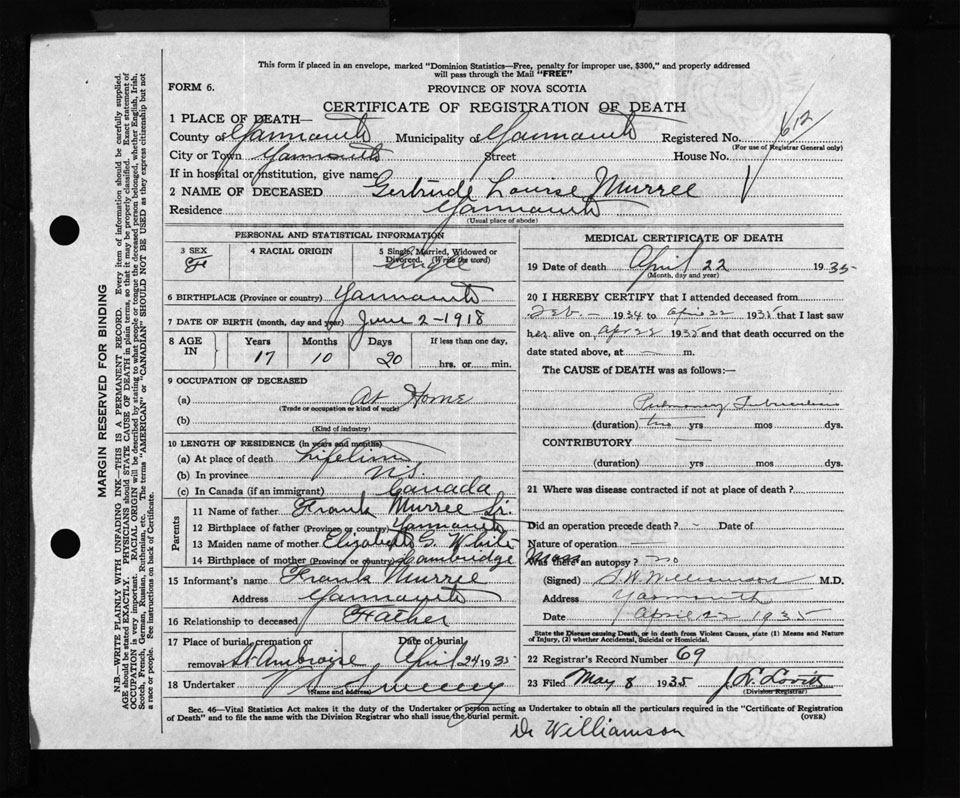 This form if placed in an envelope, marked "Dominion Statistics—Free, penalty for improper use, $300," and properly addressed
will pass through the Mail "FREE"
FORM 6.
PROVINCE OF NOVA SCOTIA
CERTIFICATE OF REGISTRATION OF DEATH
1 PLACE OF DEATH—
County of Yarmouth Municipality of Yarmouth Registered No. 612
(For use of Registrar General only)
City or Town Yarmouth Street House No.
If in hospital or institution, give name
2 NAME OF DECEASED Gertrude Louise Murree
Residence Yarmouth
(Usual place of abode)
PERSONAL AND STATISTICAL INFORMATION
3 SEX 4 RACIAL ORIGIN 5 Single, Married, Widowed or
Divorced. (Write the word)
Fe Single
6 BIRTHPLACE (Province or country) Yarmouth
7 DATE OF BIRTH (month, day and year) June 2-1918
8 AGE IN Years Months Days If less than one day,
17 10 20 hrs. or min.
9 OCCUPATION OF DECEASED
(a) At Home
(Trade or occupation or kind of work)
(b)
(Kind of industry)
10 LENGTH OF RESIDENCE (in years and months)
(a) At place of death lifetime
(b) In province N.S.
(c) In Canada (if an immigrant) Canada
Parents
11 Name of father Frank Murree Sr.
12 Birthplace of father (Province or country) Yarmouth
13 Maiden name of mother Elizabeth G. White
14 Birthplace of mother (Province or country) Cambridge Mass
15 Informant's name Frank Murree
Address Yarmouth
16 Relationship to deceased Father
17 Place of burial, cremation or Date of burial
removal St Ambroise April 24 1935
18 Undertaker V S Sweeny
(Name and address)
MEDICAL CERTIFICATE OF DEATH
19 Date of death April 22 1935
(Month, day and year)
20 I HEREBY CERTIFY that I attended deceased from
Feb. – 1934 to April 22 1935 that I last saw
her alive on Apr 22 1935 and that death occurred on the
date stated above, at — m.
The CAUSE of DEATH was as follows:—
Pulmonary Tuberculosis
(duration) two yrs mos dys.
CONTRIBUTORY —
(duration) yrs. mos. dys.
21 Where was disease contracted if not at place of death?
Did an operation precede death? – Date of
Nature of operation —
Was there an autopsy? no
(Signed) S.W. Williamson M.D.
Address Yarmouth
Date April 22 1935
State the Disease causing Death, or in death from Violent Causes, state (1) Means and Nature
of Injury, (2) whether Accidental, Suicidal or Homicidal.
22 Registrar's Record Number 69
23 Filed May 8 1935 J. N. Lovitt
(Division Registrar)
Sec. 46—Vital Statistics Act makes it the duty of the Undertaker or person acting as Undertaker to obtain all the particulars required in the "Certificate of Registration
of Death" and to file the same with the Division Registrar who shall issue the burial permit. (OVER)
Dr Williamson
MARGIN RESERVED FOR BINDING
N.B.—WRITE PLAINLY WITH UNFADING INK—THIS IS A PERMANENT RECORD. Every item of information should be carefully supplied.
AGE should be stated EXACTLY. PHYSICIANS should STATE CAUSE OF DEATH in plain terms, so that it may be properly classified. Exact statement of
OCCUPATION is very important. RACIAL ORIGIN will be described by stating to what people or tongue the deceased person belonged, whether English, Irish,
Scotch, French, German, Russian, Ruthenian, etc. The terms "AMERICAN" or "CANADIAN" SHOULD NOT BE USED as they express citizenship but not
a race or people. See instructions on back of Certificate.